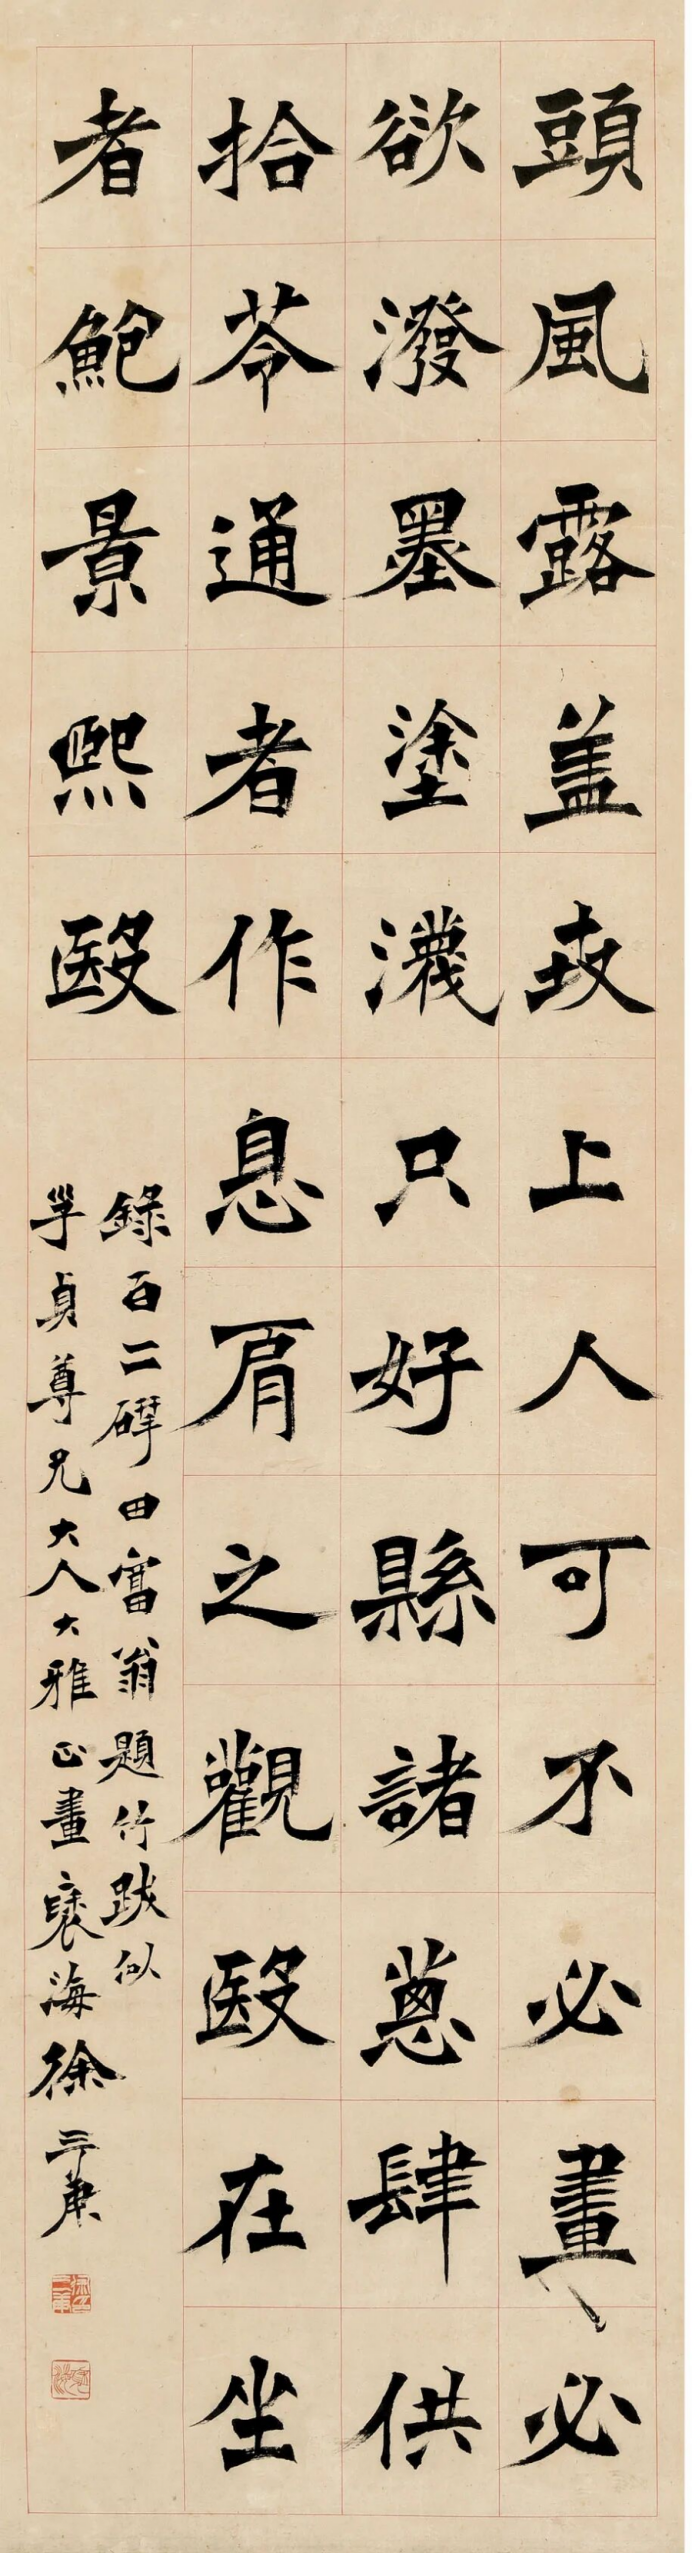 頭風露盖上人可不必畫〻必
欲潑墨塗瀎只好縣諸蔥肆供
拾苓通者作息肩之觀殹在坐
者鮑景熙殹
錄百二硏田富翁題竹跋似
貞尊兄大人大雅正畫褎海徐三庚